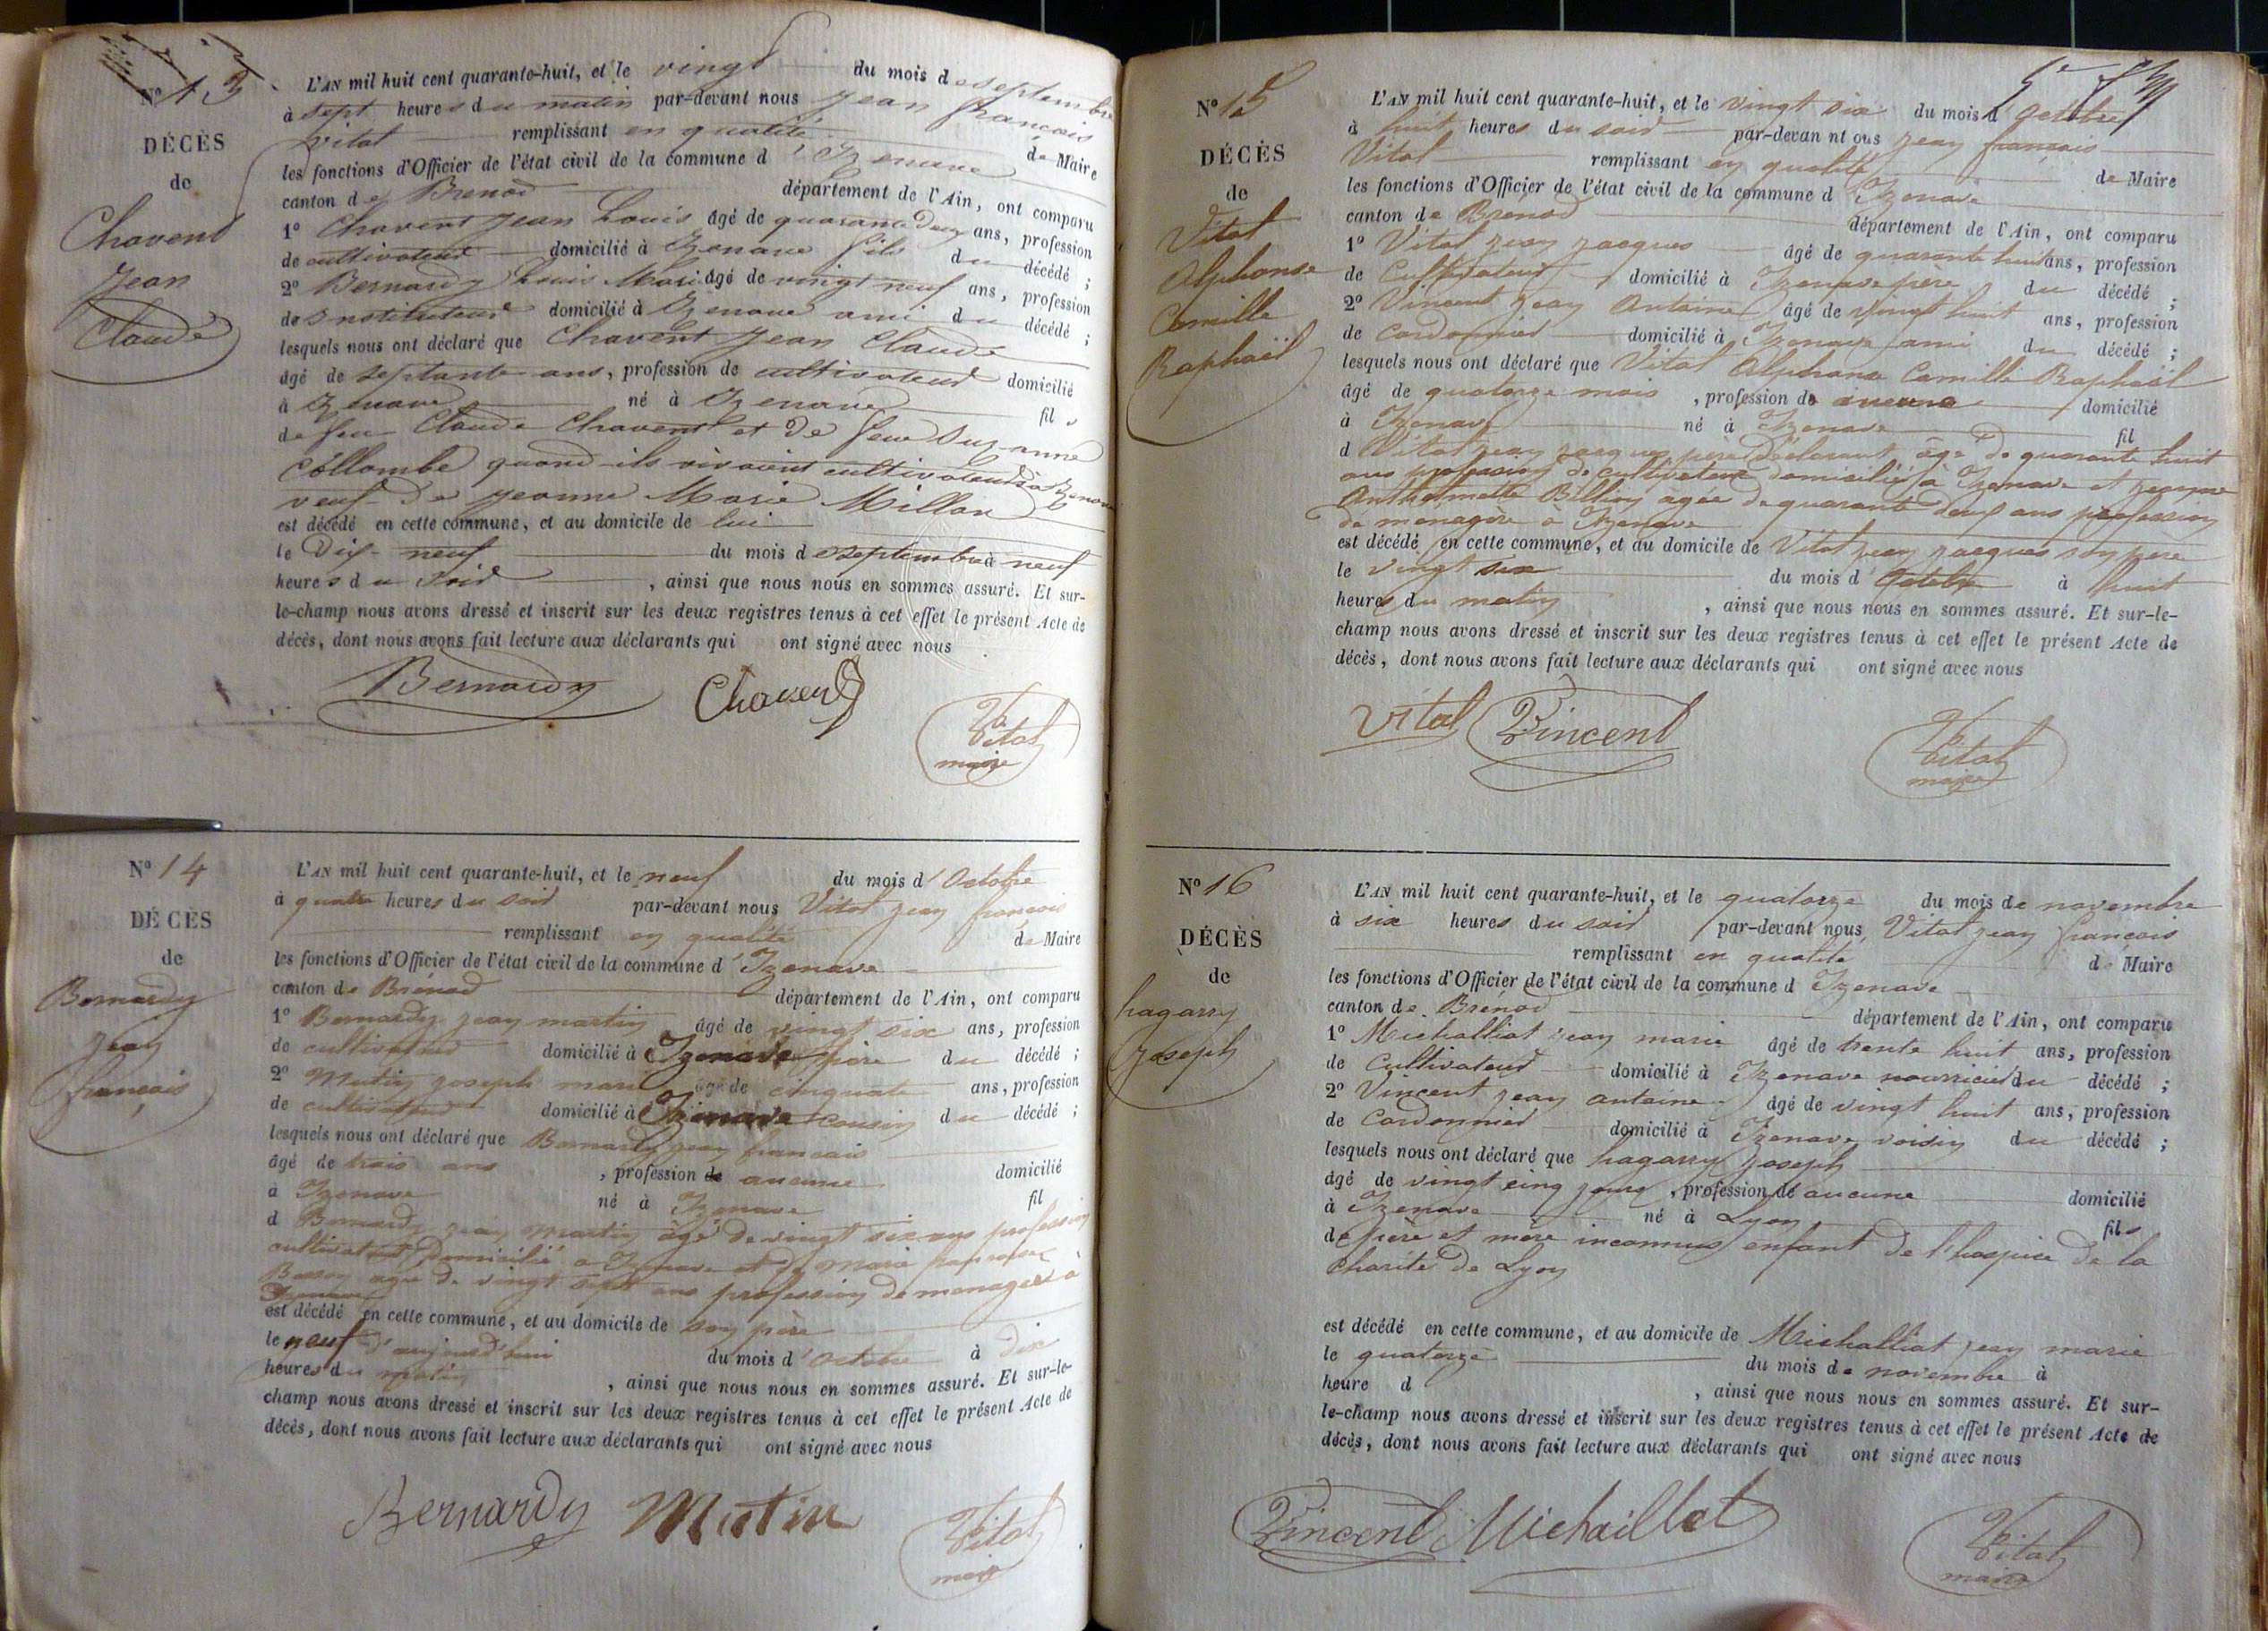 Nº 13
DÉCÈS
de
Chavent
Jean
Claude
L'AN mil huit cent quarante-huit, et le vingt du mois de septembre
à sept heures du matin par-devant nous jean francois
vital remplissant en qualité de Maire
les fonctions d'Officier de l'état civil de la commune d'Izenave
canton de Brenod département de l'Ain, ont comparu
1º Chavent Jean Louis âgé de quarante deux ans, profession
de cultivateur domicilié à Izenave fils du décédé ;
2º Bernardy Louis Marie âgé de vingt neuf ans, profession
de Instituteur domicilié à Izenave ami du décédé ;
lesquels nous ont déclaré que Chavent Jean Claude
âgé de septante ans, profession de cultivateur domicilié
à Izenave né à Izenave fils
de feu Claude Chavent et de feue Suzanne
Collombe quand ils vivaient cultivateurs à Izenave
veuf de jeanne Marie Millon
est décédé en cette commune, et au domicile de lui
le Dix-neuf du mois de septembre à neuf
heures du soir, ainsi que nous nous en sommes assuré. Et sur-
le-champ nous avons dressé et inscrit sur les deux registres tenus à cet effet le présent Acte de
décès, dont nous avons fait lecture aux déclarants qui ont signé avec nous
Bernardy Chavent Vital
maire
Nº 14
DÉCÈS
de
Bernardy
jean
francois
L'AN mil huit cent quarante-huit, et le neuf du mois d'Octobre
à quatre heures du soir par-devant nous Vital jean françois
remplissant en qualité de Maire
les fonctions d'Officier de l'état civil de la commune d'Izenave
canton de Brénod département de l'Ain, ont comparu
1º Bernardy jean martin âgé de vingt six ans, profession
de cultivateur domicilié à Izenave père du décédé ;
2º Mutin joseph marie âgé de cinquante ans, profession
de cultivateur domicilié à Izenave cousin du décédé ;
lesquels nous ont déclaré que Bernardy jean francais
âgé de trois ans, profession de aucune domicilié
à Izenave né à Izenave fil
d Bernardy jean martin âgé de vingt six ans profession
cultivateur domicilié à Izenave et de marie
âgée de vingt sept ans profession de menagère à
Izenave
est décédé en cette commune, et au domicile de son père
le neuf d'aujourd'hui du mois d'Octobre à dix
heures du matin, ainsi que nous nous en sommes assuré. Et sur-le-
champ nous avons dressé et inscrit sur les deux registres tenus à cet effet le présent Acte de
décès, dont nous avons fait lecture aux déclarants qui ont signé avec nous
Bernardy Mutin Vital
maire
Nº 15
DÉCÈS
de
Vital
Alphonse
Camille
Raphaël
L'AN mil huit cent quarante-huit, et le vingt six du mois d'Octobre
à huit heures du soir par-devan nt ous jean françois
Vital remplissant en qualité de Maire
les fonctions d'Officier de l'état civil de la commune d Izenave
canton de Brénod département de l'Ain, ont comparu
1º Vital jean jacques âgé de quarante huit ans, profession
de Cultivateur domicilié à Izenave père du décédé ;
2º Vincent jean Antoine âgé de vingt huit ans, profession
de cordonnier domicilié à Izenave ami du décédé ;
lesquels nous ont déclaré que Vital Alphonse Camille Raphaël
âgé de quatorze mois, profession de aucune domicilié
à Izenave né à Izenave fil
d Vital jean jacques père déclarant âgé de quarante huit
ans profession de cultivateur domicilié à Izenave et
Anthelmette Billon agée de quarante deux ans profession
de menagère à Izenave
est décédé en cette commune, et au domicile de Vital jean jacques son père
le vingt six du mois d'Octobre à huit
heures du matin, ainsi que nous nous en sommes assuré. Et sur-le-
champ nous avons dressé et inscrit sur les deux registres tenus à cet effet le présent Acte de
décès, dont nous avons fait lecture aux déclarants qui ont signé avec nous
Vital Vincent Vital
maire
Nº 16
DÉCÈS
de
hagarry
joseph
L'AN mil huit cent quarante-huit, et le quatorze du mois de novembre
à six heures du soir par-devant nous Vital jean francois
remplissant en qualité de Maire
les fonctions d'Officier de l'état civil de la commune d Izenave
canton de Brénod département de l'Ain, ont comparu
1º Michalliat jean marie âgé de trente huit ans, profession
de Cultivateur domicilié à Izenave nourricier du décédé ;
2º Vincent jean antoine âgé de vingt huit ans, profession
de Cordonnier domicilié à Izenave voisin du décédé ;
lesquels nous ont déclaré que hagarry joseph
âgé de vingt cinq jours, profession de aucune domicilié
à Izenave né à Lyon fils
de père et mère inconnus enfant de l'hospice de la
charité de Lyon
est décédé en cette commune, et au domicile de Michalliat jean marie
le quatorze du mois de novembre à
heure d, ainsi que nous nous en sommes assuré. Et sur-
le-champ nous avons dressé et inscrit sur les deux registres tenus à cet effet le présent Acte de
décès, dont nous avons fait lecture aux déclarants qui ont signé avec nous
Vincent Michaillat Vital
maire